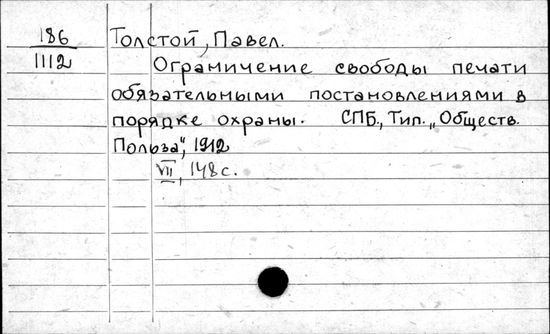 186 Толстой, Павел.
1112 Ограничение свободы печати
обязательными постановлениями в
порядке охраны. СПБ., Тип. „Обществ.
Польза", 1912
VII, 148 с.